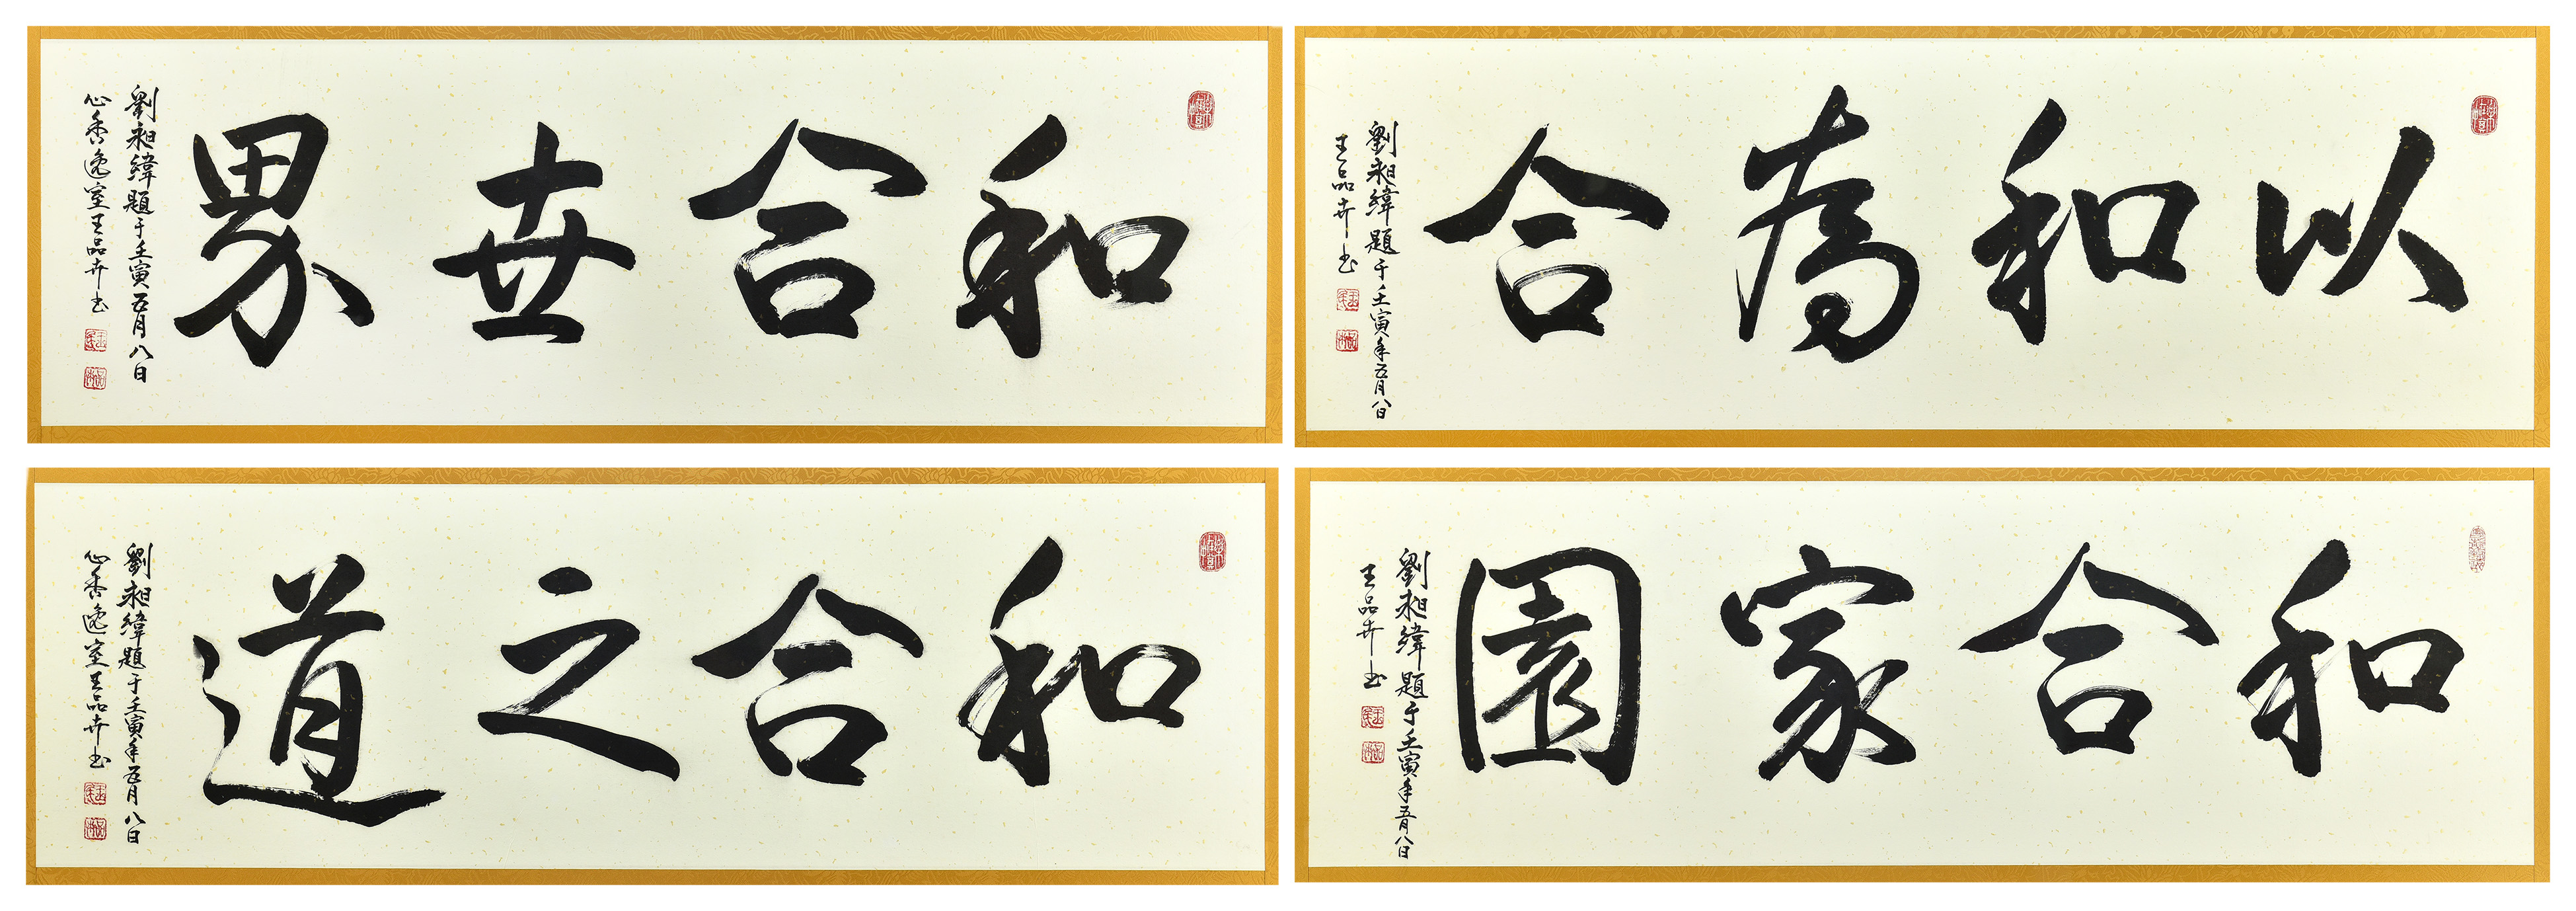 和合世界
劉昶緯題于壬寅五月八日
心香逸室王品卉书
以和為合
劉昶緯題于壬寅年五月八日
王品卉书
和合之道
劉昶緯題于壬寅年五月八日
心香逸室王品卉书
和合家園
劉昶緯題于壬寅年五月八日
王品卉书